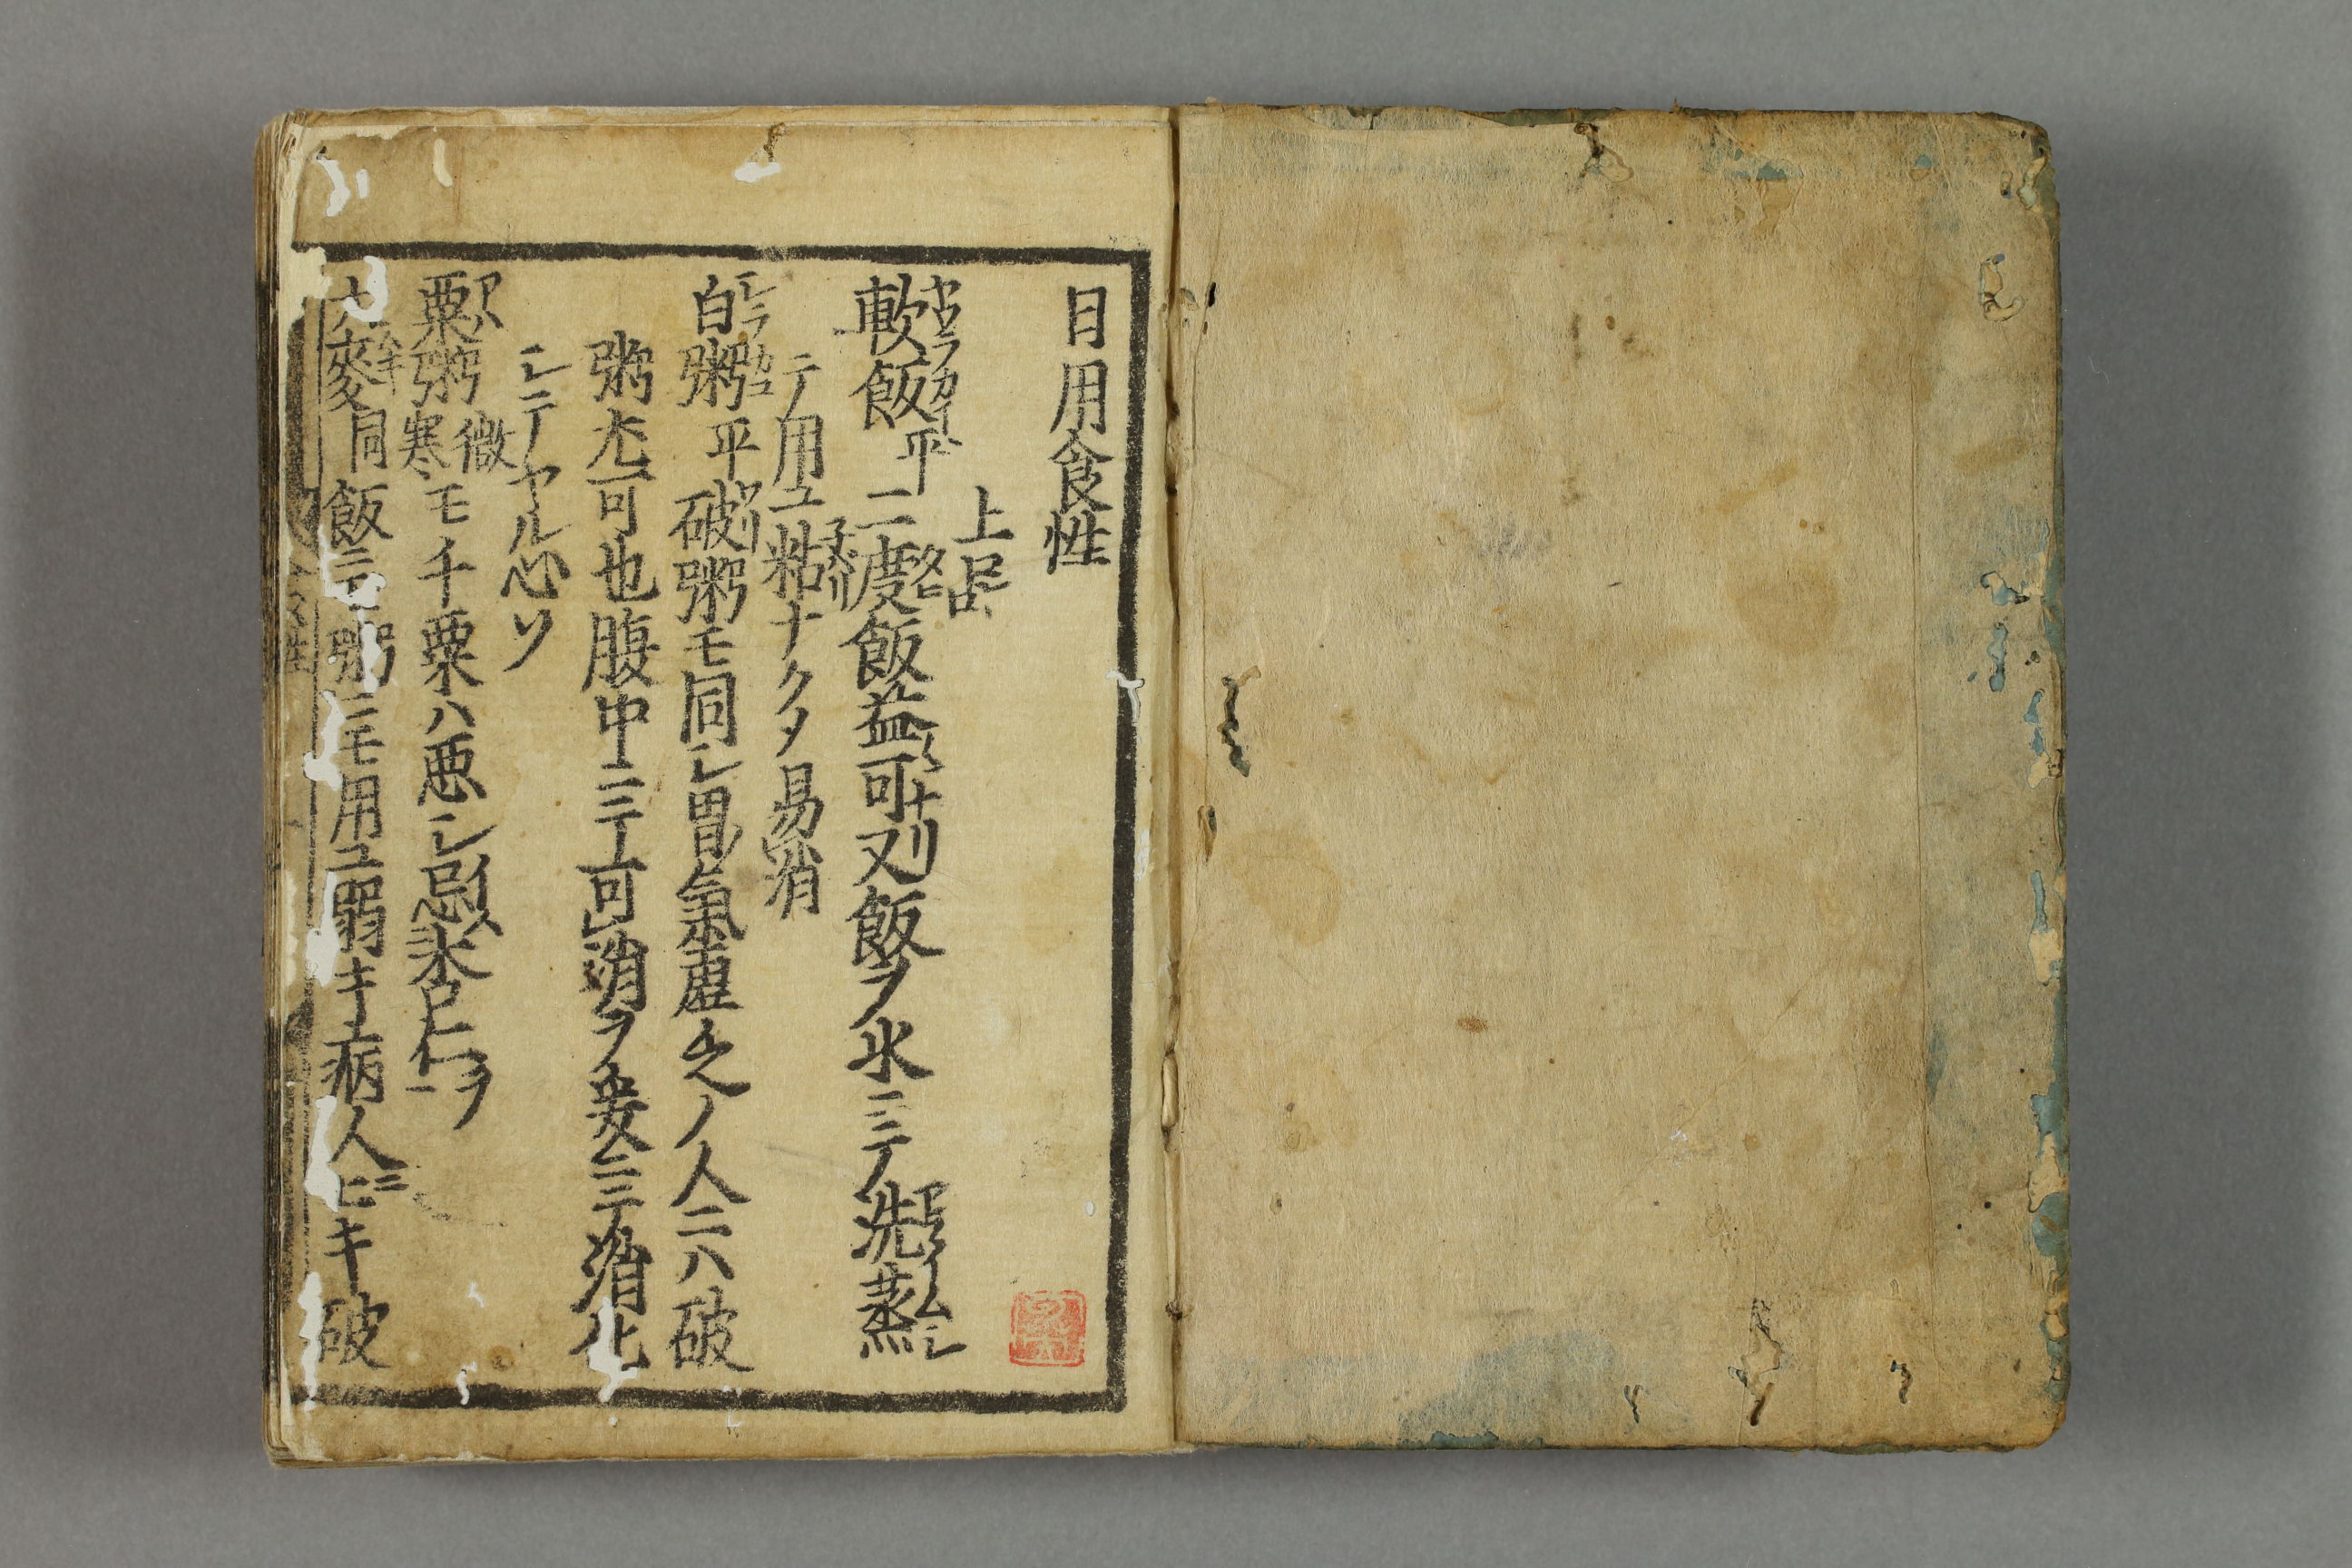 日用食性
上品
軟飯平二度飯益可ナリ又飯ヲ水ニテ洗蒸
テ用ユ粘ナクタ易消
白粥平破粥モ同シ胃氣虚乏ノ人ニハ破
粥尤可也腹中ニテ可消ヲ釜ニテ消化
シテヤル心ソ
粟粥微寒モチ粟ハ悪シ忌杏仁ヲ
大麥同飯ニモ粥ニモ用ユ弱キ病人ニ キ破